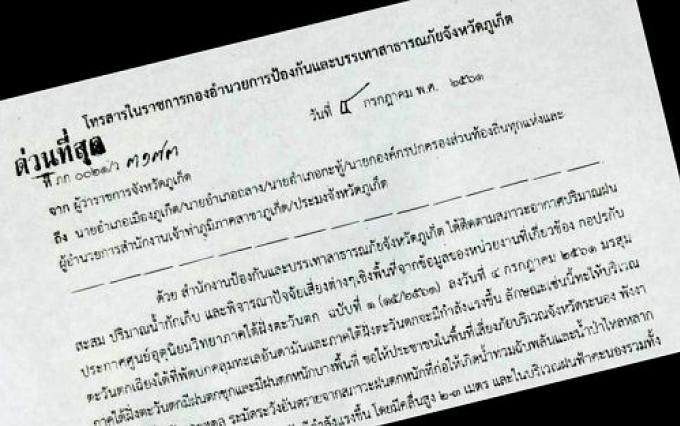 โทรสารในราชการกองอำนวยการป้องกันและบรรเทาสาธารณภัยจังหวัดภูเก็ต
ด่วนที่สุด
ที่ ภก ๐๐๒๑/ว ๓๑๙๓ วันที่ ๔ กรกฎาคม พ.ศ. ๒๕๖๑
จาก ผู้ว่าราชการจังหวัดภูเก็ต
ถึง นายอำเภอเมืองภูเก็ต/นายอำเภอถลาง/นายอำเภอกะทู้/นายกองค์กรปกครองส่วนท้องถิ่นทุกแห่งและ
ผู้อำนวยการสำนักงานเจ้าท่าภูมิภาคสาขาภูเก็ต/ประมงจังหวัดภูเก็ต
ด้วย สำนักงานป้องกันและบรรเทาสาธารณภัยจังหวัดภูเก็ต ได้ติดตามสภาวะอากาศปริมาณฝน
สะสม ปริมาณน้ำกักเก็บ และพิจารณาปัจจัยเสี่ยงต่างๆเชิงพื้นที่จากข้อมูลของหน่วยงานที่เกี่ยวข้อง กอปรกับ
ประกาศศูนย์อุตุนิยมวิทยาภาคใต้ฝั่งตะวันตก ฉบับที่ ๑ (๑๕/๒๕๖๑) ลงวันที่ ๔ กรกฎาคม ๒๕๖๑ มรสุม
ตะวันตกเฉียงใต้ที่พัดปกคลุมทะเลอันดามันและภาคใต้ฝั่งตะวันตกจะมีกำลังแรงขึ้น ลักษณะเช่นนี้จะทำให้บริเวณ
ภาคใต้ฝั่งตะวันตกมีฝนตกชุกและมีฝนตกหนักบางพื้นที่ ขอให้ประชาชนในพื้นที่เสี่ยงภัยบริเวณจังหวัดระนอง พังงา
ระมัดระวังอันตรายจากสภาวะฝนตกหนักที่ก่อให้เกิดน้ำท่วมฉับพลันและน้ำป่าไหลหลาก
กำลังแรงขึ้น โดยมีคลื่นสูง ๒-๓ เมตร และในบริเวณฝนฟ้าคะนองรวมทั้ง